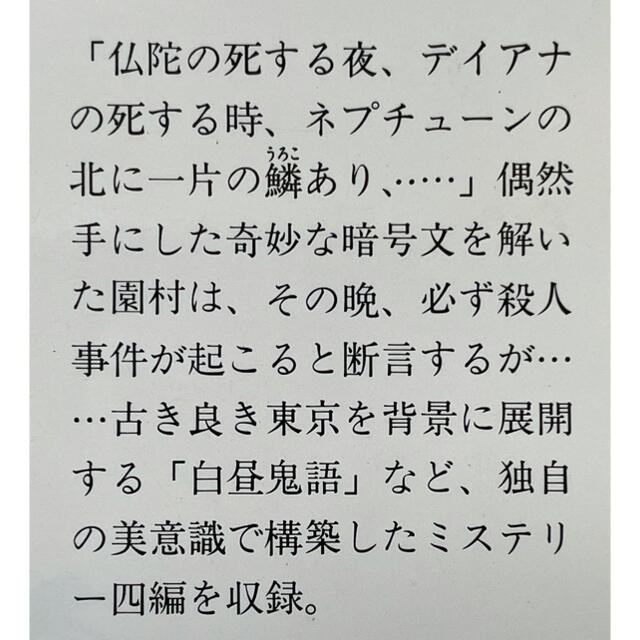 「仏陀の死する夜、デイアナ
の死する時、ネプチューンの
北に一片の鱗あり、……」偶然
手にした奇妙な暗号文を解い
た園村は、その晩、必ず殺人
事件が起こると断言するが…
…古き良き東京を背景に展開
する「白昼鬼語」など、独自
の美意識で構築したミステリ
ー四編を収録。